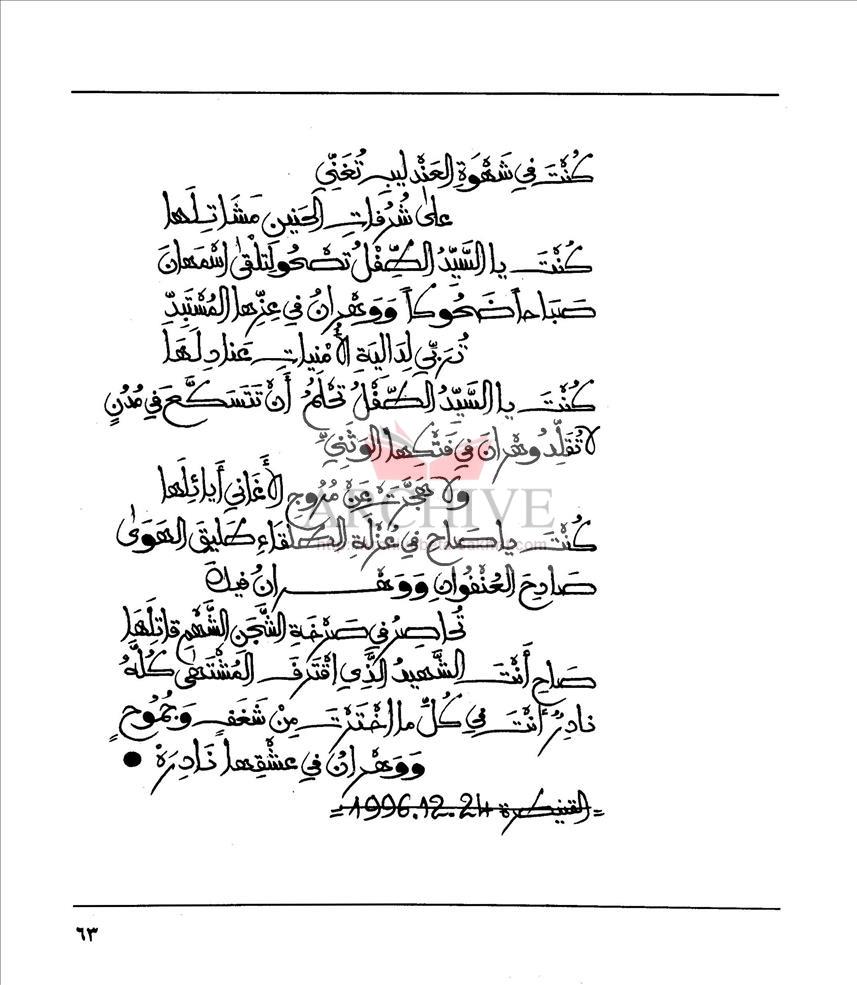 كُنْتَ فِي شَهْوَةِ العَنْدليبِ تُغَنِّي
على شُرُفاتِ الحَنينِ مَشَاتِلَها
كُنْتَ يا السَّيِّدُ الطِّفْلُ تَصْحُو لِتَلْقَى اسْمَهانَ
صَبَاحاً ضَحُوكاً وَوَهْرانُ في عِزِّها المُسْتَبِدِّ
تُرَبِّي لِدالِيَةِ الأُمْنِياتِ عَنادِلَهَا
كُنْتَ يا السَّيِّدُ الطِّفْلُ تَحْلَمُ أَنْ تَتَسَكَّعَ فِي مُدُنٍ
لا تُقَلِّدُ وهْرانَ فِي فَتْكِها الوَثَنِيِّ
ولا هَجَّرَتْ عَنْ مُرُوجِ الأَغَانِي أَيائِلَها
كُنْتَ يا صَاحِ فِي عُزْلَةِ الطُّلَقَاءِ طَلِيقَ الهَوَى
صَادِحَ العُنْفُوانِ وَوَهْرانُ فيكَ
تُحاصِرُ في صَرْخَةِ الشَّجَنِ الشَّهْمِ قاتِلَها
صَاحِ أَنْتَ الشَّهيدُ الَّذِي اقْتَرَفَ المُشْتَهَى كُلَّهُ
نادِرٌ أنْتَ فِي كُلِّ ما اخْتَرْتَ مِنْ شَغَفٍ وَجُمُوحٍ
وَوَهْرانُ فِي عِشْقِها نَادِرَهْ ●
= القنيطرة 24.12.1996 =
ARCHIVE
٦٣